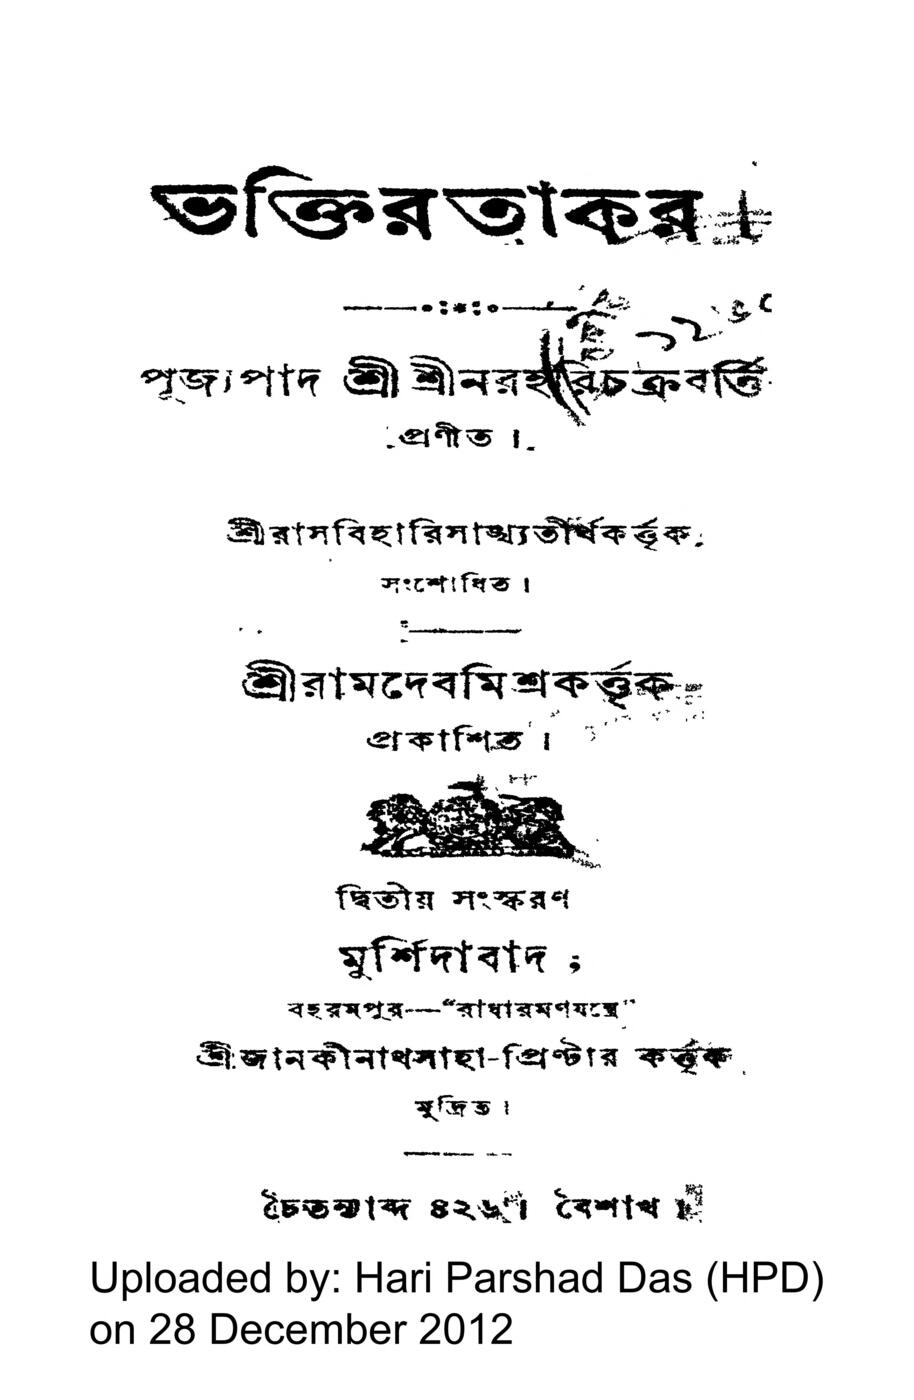 ভক্তিরত্নাকর।
১২৬৫
পূজ্যপাদ শ্রী শ্রীনরহরিচক্রবর্ত্তি
প্রণীত।
শ্রীরাসবিহারিসাঙ্খ্যতীর্থকর্ত্তৃক
সংশোধিত।
শ্রীরামদেবমিশ্রকর্ত্তৃক
প্রকাশিত।
দ্বিতীয় সংস্করণ
মুর্শিদাবাদ;
বহরমপুর—"রাধারমণযন্ত্রে"
শ্রীজানকীনাথসাহা-প্রিণ্টার কর্ত্তৃক
মুদ্রিত।
চৈতন্যাব্দ ৪২৬। বৈশাখ।
Uploaded by: Hari Parshad Das (HPD)
on 28 December 2012